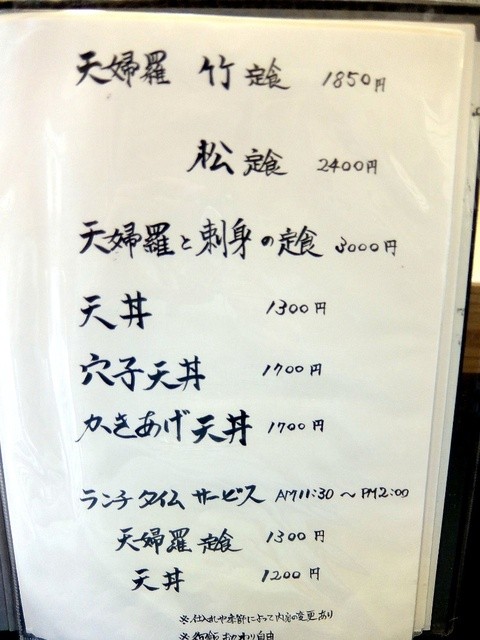 天婦羅 竹 定食 1850円
松 定食 2400円
天婦羅と刺身の定食 3000円
天丼 1300円
穴子天丼 1700円
かきあげ天丼 1700円
ランチタイムサービス AM11:30～PM2:00
天婦羅 定食 1300円
天丼 1200円
※仕入れや季節によって内容の変更あり
※御飯おかわり自由